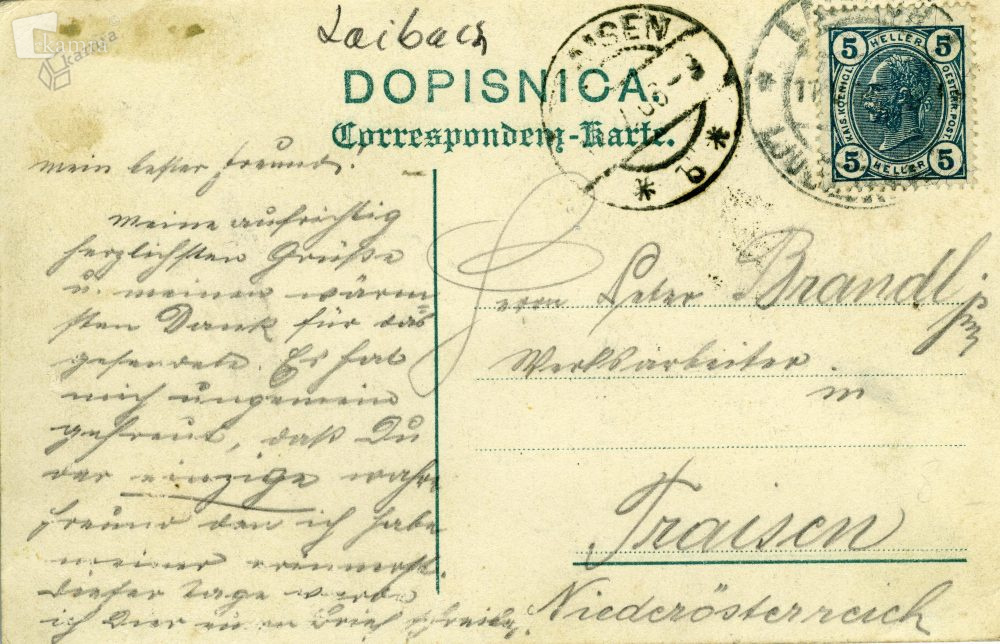 kamra
kamra
Laibach
DOPISNICA.
Correspondenz-Karte.
AISEN
* b *
5 HELLER 5
KAIS. KOENIGL. OESTERR. POST
5 HELLER 5
mein bester Freund!
Meine aufrichtig
herzlichsten Grüße
u. meinen wärm
sten Dank für das
gesendete. Es hat
mich ungemein
gefreut, daß Du
der einzige wahre
Freund den ich habe
meiner erinnerst.
Dieser Tage werde
ich Dir einen Brief schreiben.
Herrn Peter Brandl jun
Werksarbeiter
in
Traisen
Niederösterreich